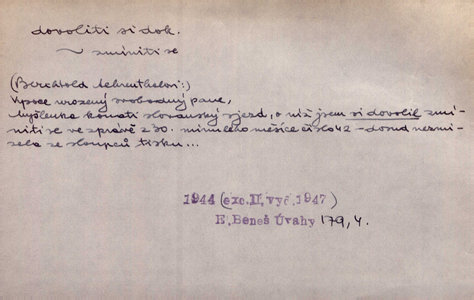 dovoliti si dok.
~ zmíniti se
(Berchtold Aehrenthalovi:)
Vysoce urozený svobodný pane,
myšlenka konati slovanský sjezd, o níž jsem si dovolil zmí-
niti se ve zprávě z 30. minulého měsíce číslo 42 – dosud nezmi-
zela ze sloupců tisku...
1944 (exc. II, vyč. 1947)
E. Beneš Úvahy 179, 4.